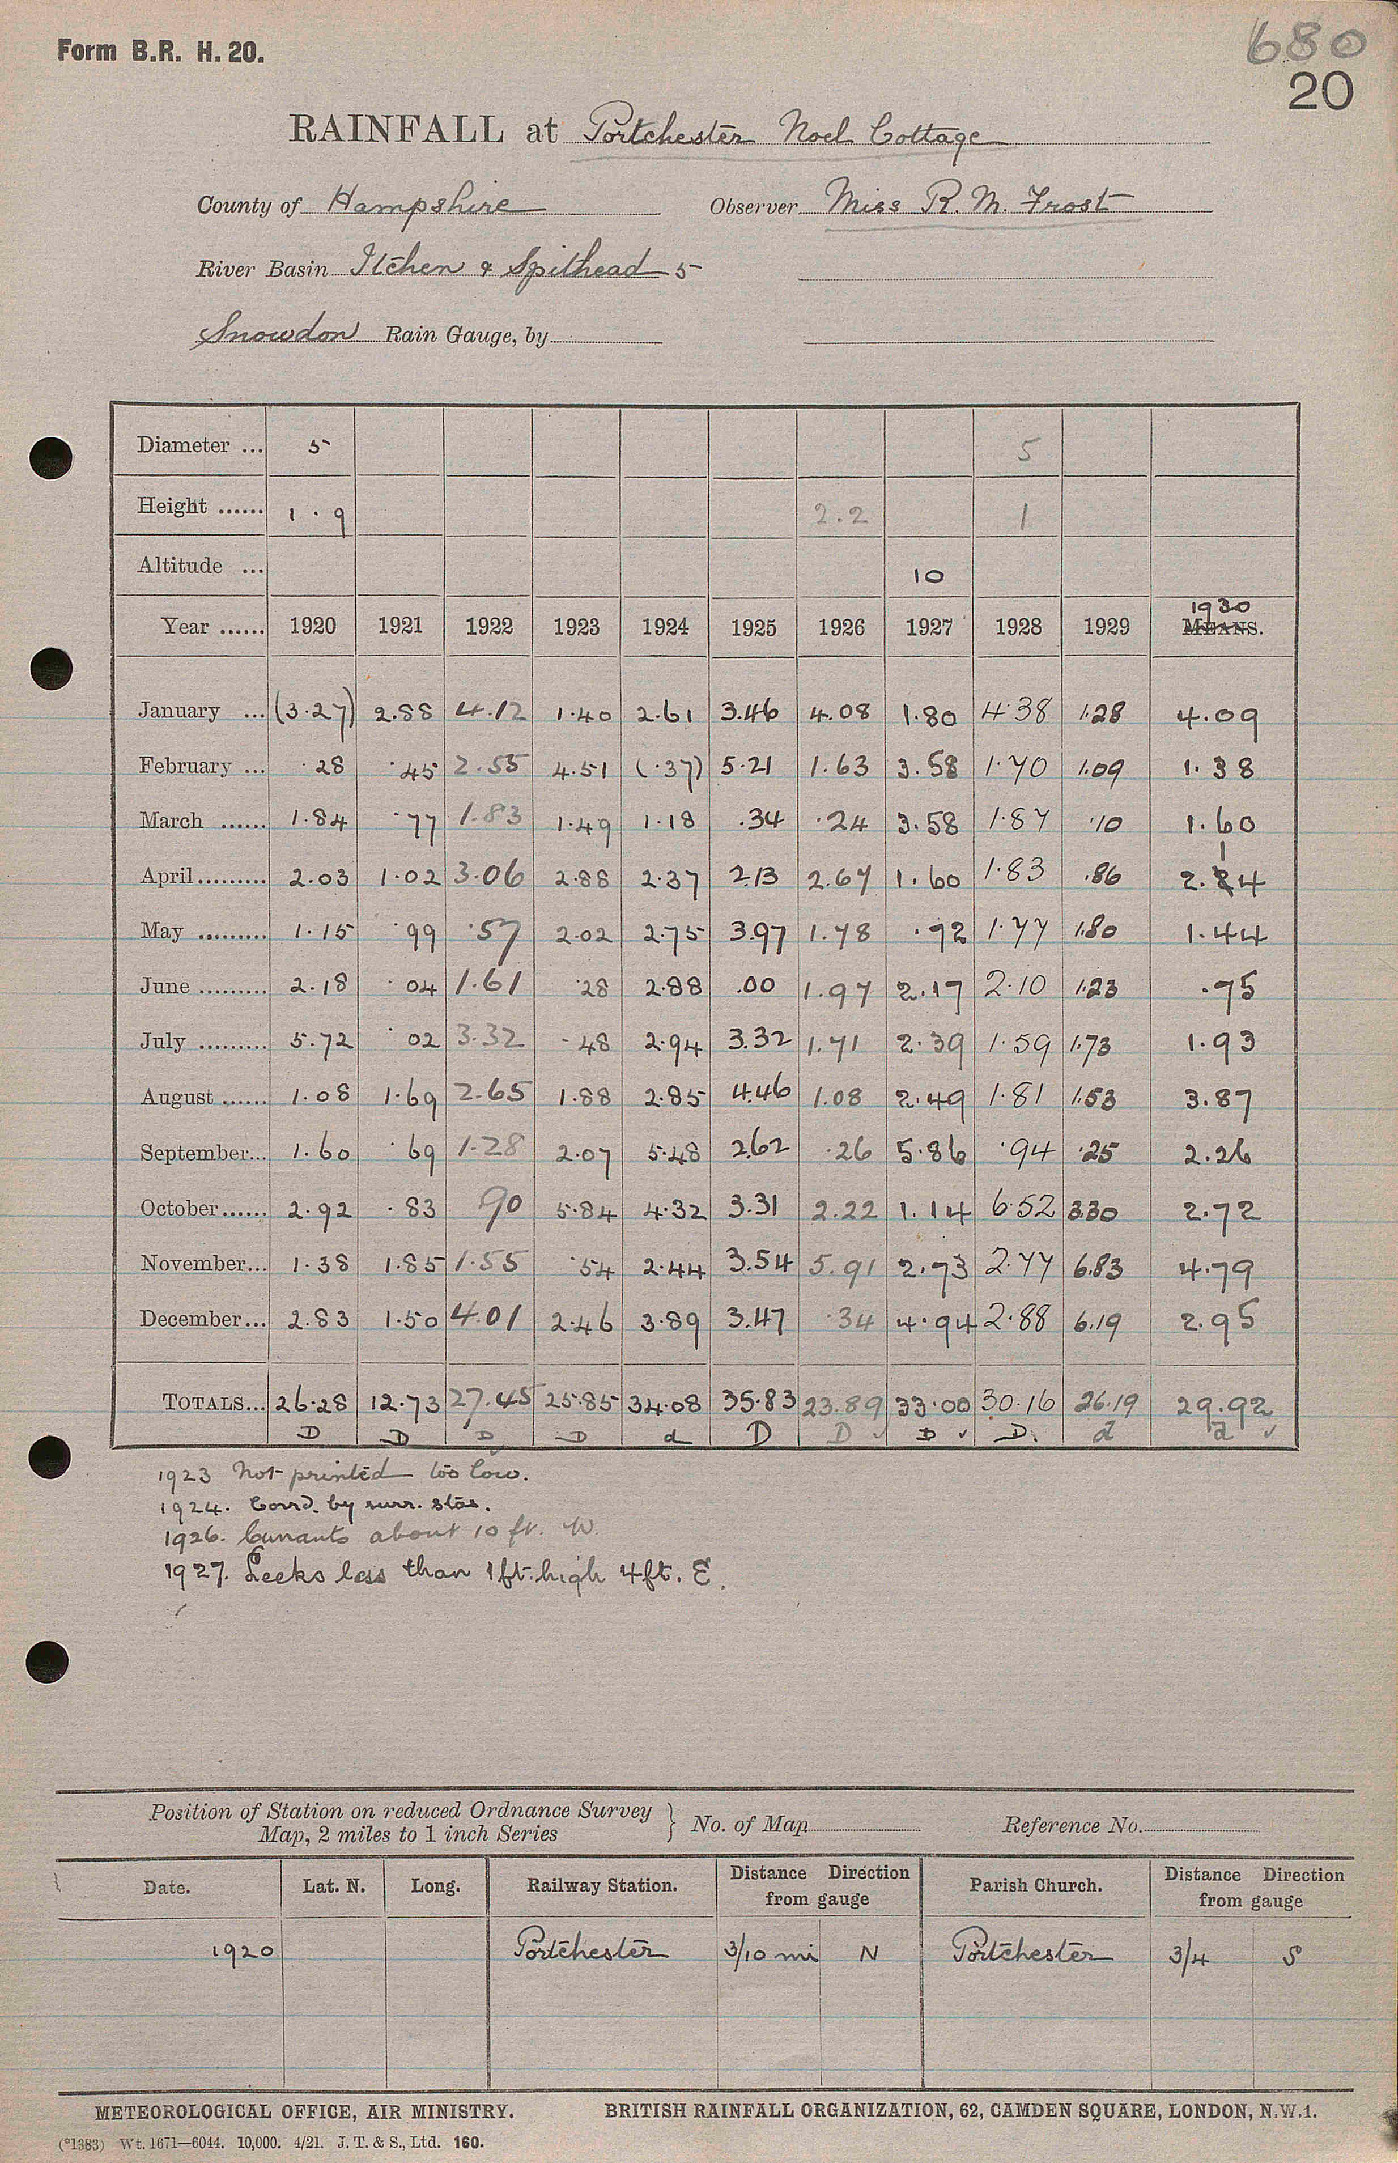 Form B.R. H. 20.
680
20
RAINFALL at Portchester Noel Cottage
County of Hampshire Observer Miss R. M. Frost
River Basin Itchen & Spithead 5
Snowdon Rain Gauge, by
Diameter ... 5 5
Height ...... 1 . 9 2.2 1
Altitude ... 10
1930
Year ...... 1920 1921 1922 1923 1924 1925 1926 1927 1928 1929 MEANS.
January ... (3.27) 2.88 4.12 1.40 2.61 3.46 4.08 1.80 4.38 1.28 4.09
February ... .28 .45 2.55 4.51 (.37) 5.21 1.63 3.58 1.70 1.09 1.38
March ...... 1.84 .77 1.83 1.49 1.18 .34 .24 3.58 1.87 .10 1.60
April......... 2.03 1.02 3.06 2.88 2.37 2.13 2.67 1.60 1.83 .86 2.14
May ......... 1.15 .99 .57 2.02 2.75 3.97 1.78 .92 1.77 1.80 1.44
June ......... 2.18 .04 1.61 .28 2.88 .00 1.97 2.17 2.10 1.23 .75
July ......... 5.72 .02 3.32 .48 2.94 3.32 1.71 2.39 1.59 1.73 1.93
August ...... 1.08 1.69 2.65 1.88 2.85 4.46 1.08 2.49 1.81 1.53 3.87
September... 1.60 .69 1.28 2.07 5.48 2.62 .26 5.86 .94 .25 2.26
October...... 2.92 .83 .90 5.84 4.32 3.31 2.22 1.14 6.52 3.30 2.72
November... 1.38 1.85 1.55 .54 2.44 3.54 5.91 2.73 2.77 6.83 4.79
December... 2.83 1.50 4.01 2.46 3.89 3.47 .34 4.94 2.88 6.19 2.95
TOTALS... 26.28 12.73 27.45 25.85 34.08 35.83 23.89 33.00 30.16 26.19 29.92
D D D D d D D ✓ D ✓ D. d d ✓
1923 Not printed too low.
1924. Corrd. by surr. stas.
1926. Currants about 10 ft. W.
1927. Leeks less than 1ft. high 4ft. E.
Position of Station on reduced Ordnance Survey
Map, 2 miles to 1 inch Series } No. of Map Reference No.
Date. Lat. N. Long. Railway Station. Distance Direction from gauge Parish Church. Distance Direction from gauge
1920 Portchester 3/10 mi N Portchester 3/4 S
METEOROLOGICAL OFFICE, AIR MINISTRY. BRITISH RAINFALL ORGANIZATION, 62, CAMDEN SQUARE, LONDON, N.W.1.
(*1383) Wt. 1671—6044. 10,000. 4/21. J. T. & S., Ltd. 160.